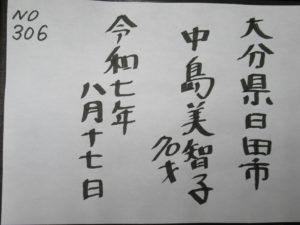 NO
306
大分県日田市
中島美智子
70才
令和七年
八月十七日